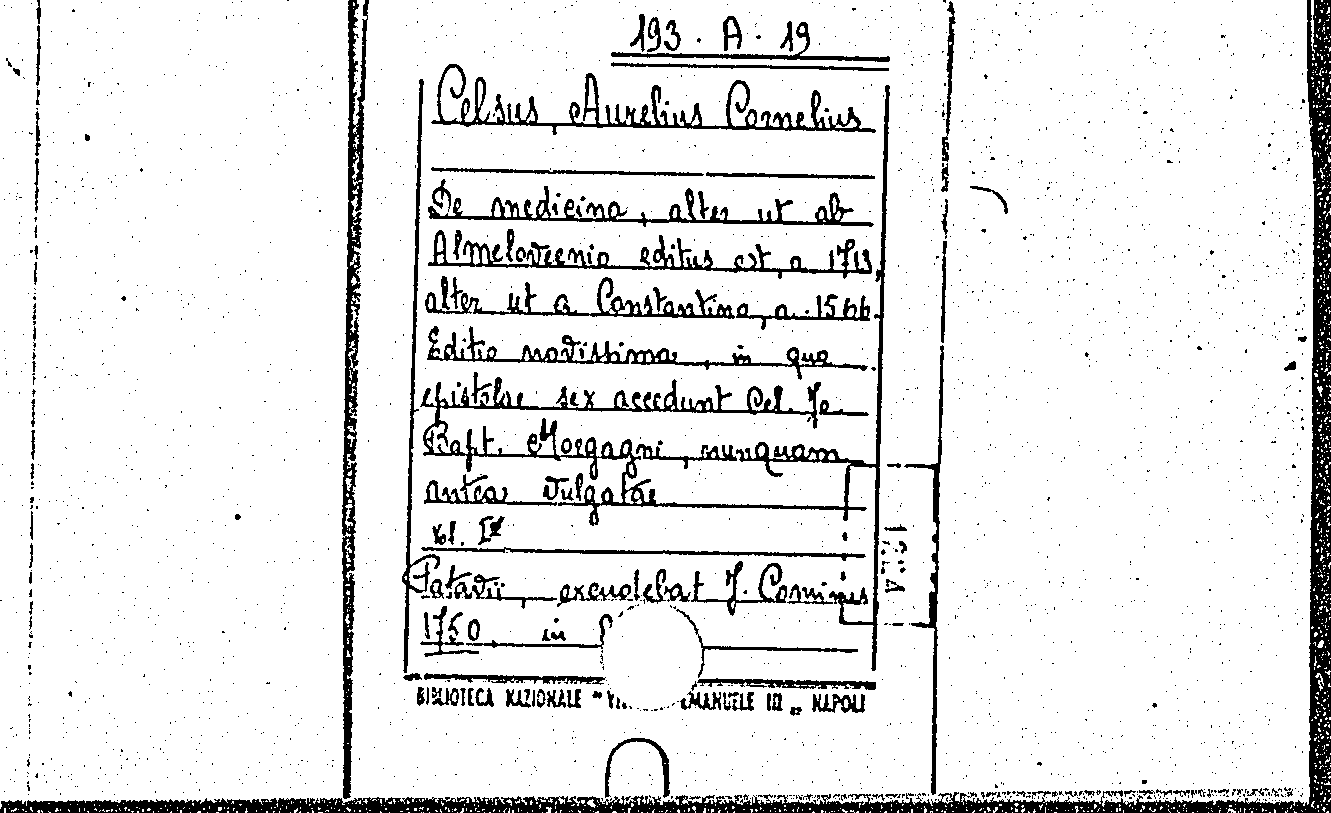 193 · A · 19
Celsus, Aurelius Cornelius
De medicina, alter ut ab
Almeloveenio editus est, a 1713,
alter ut a Constantino, a. 1566.
Editio novissima, in qua
epistolae sex accedunt Cel. Jo.
Bapt. Morgagni, nunquam
antea vulgatae
Vol. I
Patavii, excudebat J. Cominus
1750, in
BIBLIOTECA NAZIONALE " EMANUELE III " NAPOLI